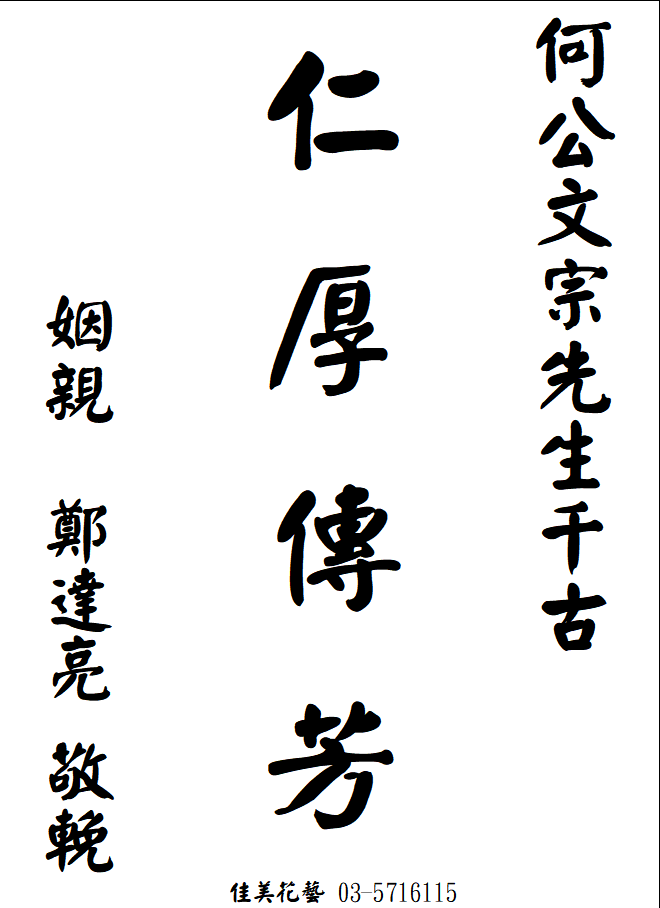 何公文宗先生千古
仁厚傳芳
姻親 鄭達亮 敬輓
佳美花藝 03-5716115